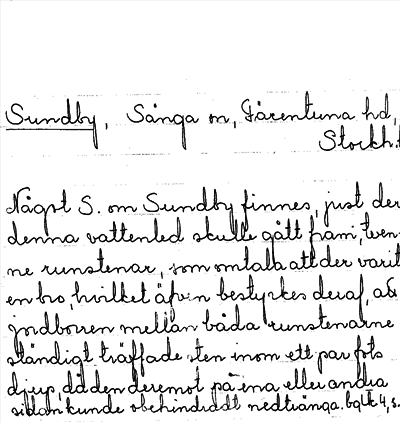 Sundby, Sånga sn, Färentuna hd,
Stockh.
Något S. om Sundby finnes, just der
denna vattenled skulle gått fram, tven-
ne runstenar, som omtala att der varit
en bro, hvilket äfven bestyrkes deraf, att
jordboren mellan båda runstenarne
ständigt träffade sten inom ett par fots
djup, då den deremot på ena eller andra
sidan kunde obehindradt nedtränga.